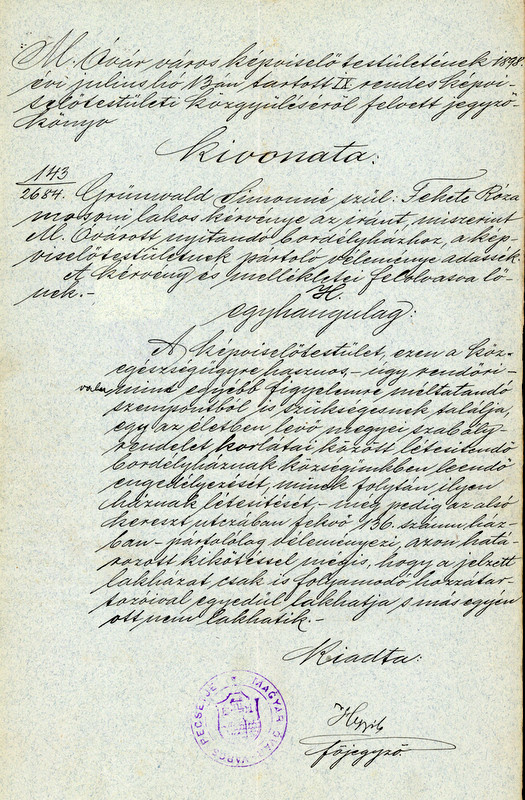 M. Óvár város képviselő testületének 1898.
évi julius hó 13 án tartott IX rendes képvi-
selőtestületi közgyüléséről felvett jegyző-
könyv
Kivonata:
143
2684. Grünwald Simonné szül: Fehete Róza
mosoni lakos kérvénye az iránt, miszerint
M. Óvárott nyitandó bordélyházhoz, a kép-
viselőtestületnek pártoló véleménye adassék.
A kérvény és mellékletei felolvasva lő-
nek.-
H.
egyhangulag:
A képviselőtestület, ezen a köz-
egészségügyre hasznos,- úgy rendőri-
mint egyébb figyelemre méltatandó
szempontból is szükségesnek találja,
egy az életben levő megyei szabály-
rendelet korlátai között létesitendő
bordélyháznak községünkben leendő
engedélyezését, minek folytán ilyen
háznak létesitését,- még pedig az alsó
kereszt utczában fekvő 136. számu ház-
ban- pártolólag véleményezi, azon hatá-
rozott kikötéssel mégis, hogy a jelzett
lakházat csak is folyamodó hozzátar-
tozóival egyedül lakhatja s más egyén
ott nem lakhatik.-
Kiadta:
MAGYAR ÓVÁR VÁROS PECSÉTJE
főjegyző.